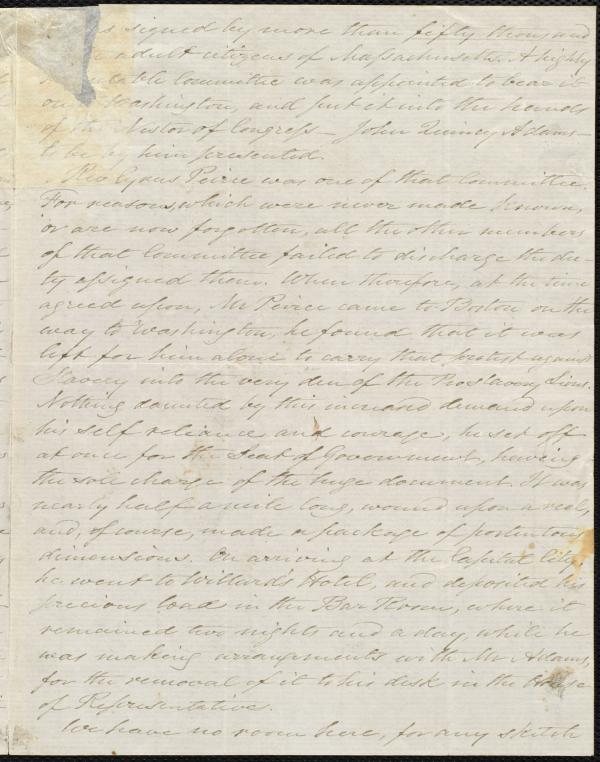 signed by more than fifty thousand
adult citizens of Massachusetts. A highly
Committee was appointed to bear it
on Washington, and put it into the hands
of the Nestor of Congress – John Quincy Adams –
to be by him presented.
Rev Cyrus Peirce was one of that Committee.
For reasons, which were never made known,
or are now forgotten, all the other members
of that Committee failed to discharge the du-
ty assigned them. When therefore, at the time
agreed upon, Mr Peirce came to Boston on the
way to Washington, he found that it was
left for him alone to carry that protest against
Slavery into the very den of the Proslavery Lions.
Nothing daunted by this increased demand upon
his self reliance and courage, he set off
at once for the Seat of Government, having
the sole charge of the huge document. It was
nearly half a mile long, wound upon a reel,
and, of course, made a package of portentous
dimensions. On arriving at the Capital City,
he went to Willard's Hotel, and deposited his
precious load in the Bar Room, where it
remained two nights and a day, while he
was making arrangements with Mr Adams,
for the removal of it to his desk in the House
of Representatives.
We have no room here, for any sketch